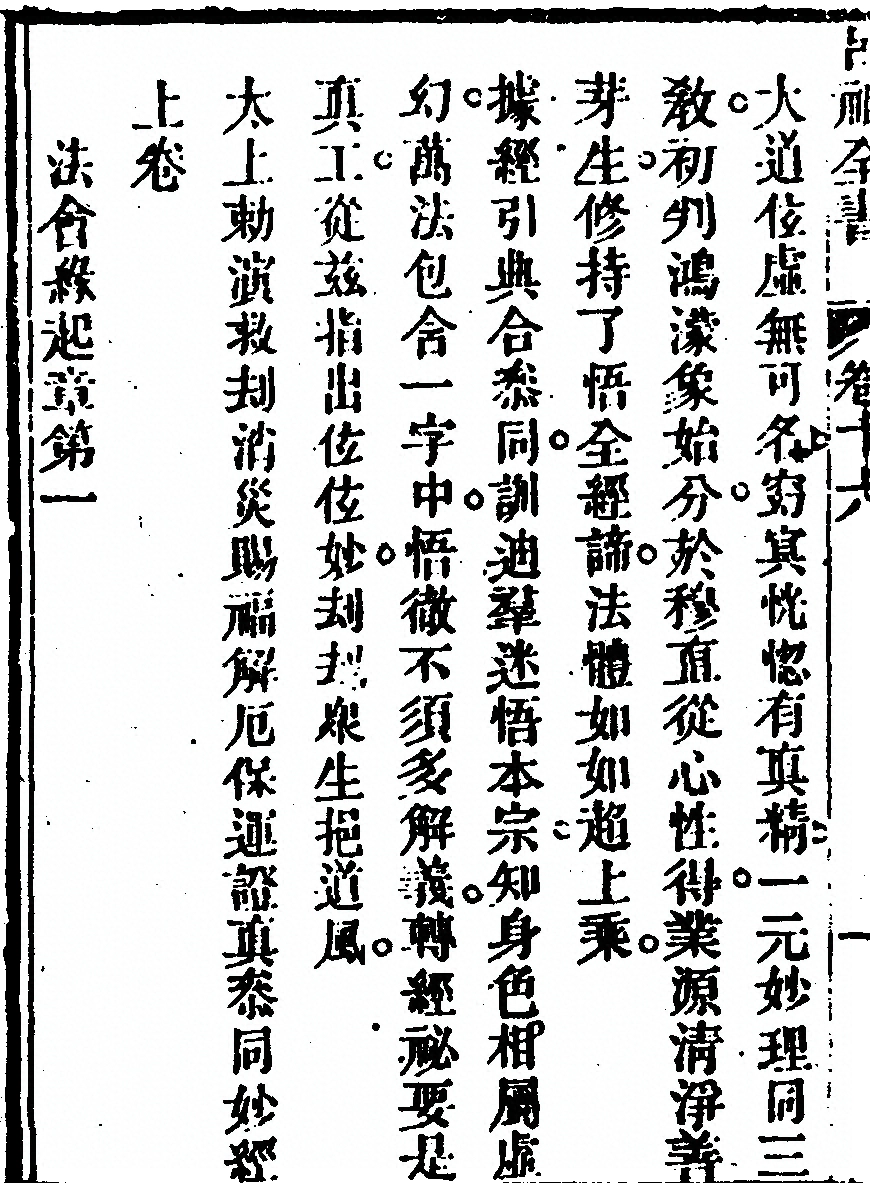 呂祖全書 卷十六 一
大道位虛無可名窈冥恍惚有真精一元妙理同三
教初判鴻濛象始分於穆直從心性得業源清淨善
芽生修持了悟全經諦法體如如超上乘
據經引典合叅同訓迪羣迷悟本宗知身色相屬虛
幻萬法包含一字中悟徹不須多解義轉經祕要是
真工從茲指出位位妙刦刦衆生挹道風
太上勅演救刦消災賜福解厄保運證真叅同妙經
上卷
法會緣起章第一